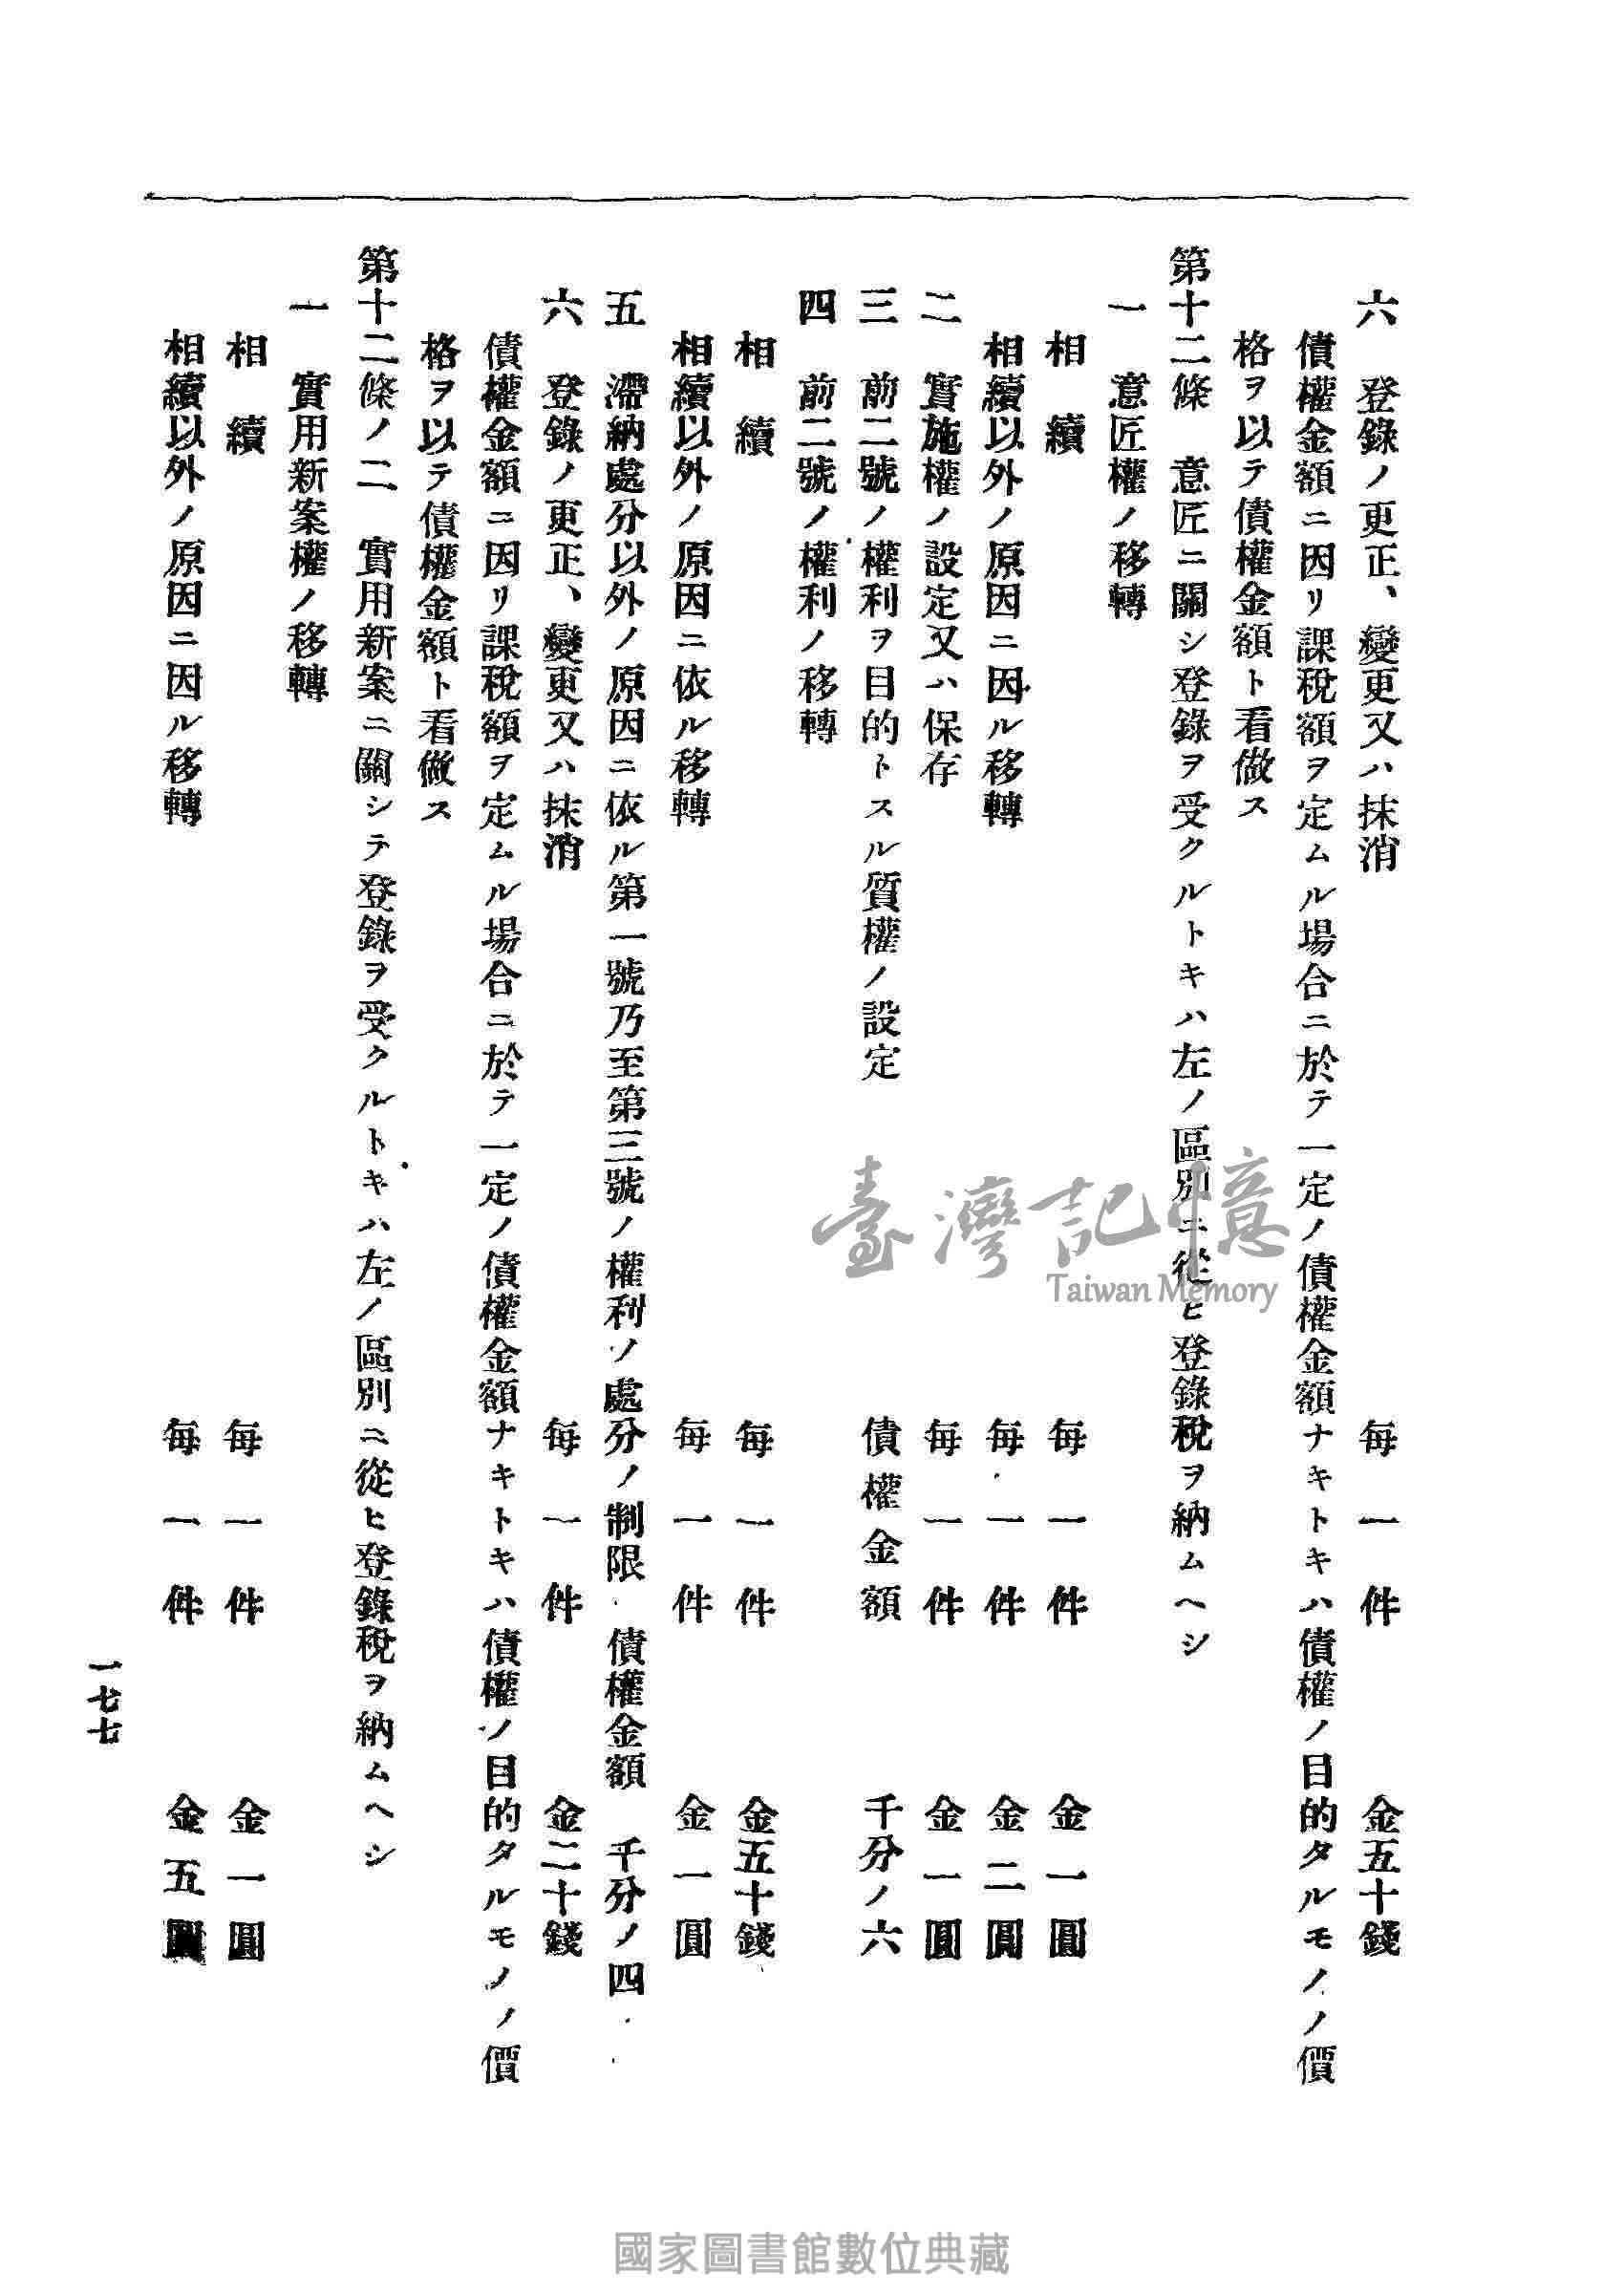 六　登錄ノ更正、變更又ハ抹消　每一件　金五十錢
債權金額ニ因リ課稅額ヲ定ムル場合ニ於テ一定ノ債權金額ナキトキハ債權ノ目的タルモノノ價
格ヲ以テ債權金額ト看做ス
第十二條　意匠ニ關シ登錄ヲ受クルトキハ左ノ區別ニ從ヒ登錄稅ヲ納ムヘシ
一　意匠權ノ移轉
相續　每一件　金一圓
相續以外ノ原因ニ因ル移轉　每一件　金二圓
二　實施權ノ設定又ハ保存　每一件　金一圓
三　前二號ノ權利ヲ目的トスル質權ノ設定　債權金額　千分ノ六
四　前二號ノ權利ノ移轉
相續　每一件　金五十錢
相續以外ノ原因ニ依ル移轉　每一件　金一圓
五　滯納處分以外ノ原因ニ依ル第一號乃至第三號ノ權利ノ處分ノ制限　債權金額　千分ノ四
六　登錄ノ更正、變更又ハ抹消　每一件　金二十錢
債權金額ニ因リ課稅額ヲ定ムル場合ニ於テ一定ノ債權金額ナキトキハ債權ノ目的タルモノノ價
格ヲ以テ債權金額ト看做ス
第十二條ノ二　實用新案ニ關シテ登錄ヲ受クルトキハ左ノ區別ニ從ヒ登錄稅ヲ納ムヘシ
一　實用新案權ノ移轉
相續　每一件　金一圓
相續以外ノ原因ニ因ル移轉　每一件　金五圓
一七七
臺灣記憶
Taiwan Memory
國家圖書館數位典藏